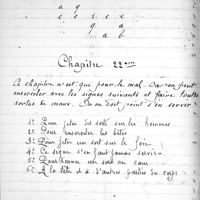 a g
c o r e x
g a
a b
Chapitre 22ème
Ce chapitre n'est que pour le mal. On en peut
ensorceler avec les signes suivants et faire toutes
sortes de maux. On ne doit point s'en servir
1º Pour jeter les sorts sur les hommes
2º Pour ensorceler les bêtes
3º Pour jeter un sort sur le
4º Ce signe s'en faut jamais servir
5º un sort au
6º A la tête et à d'autres parties du corps